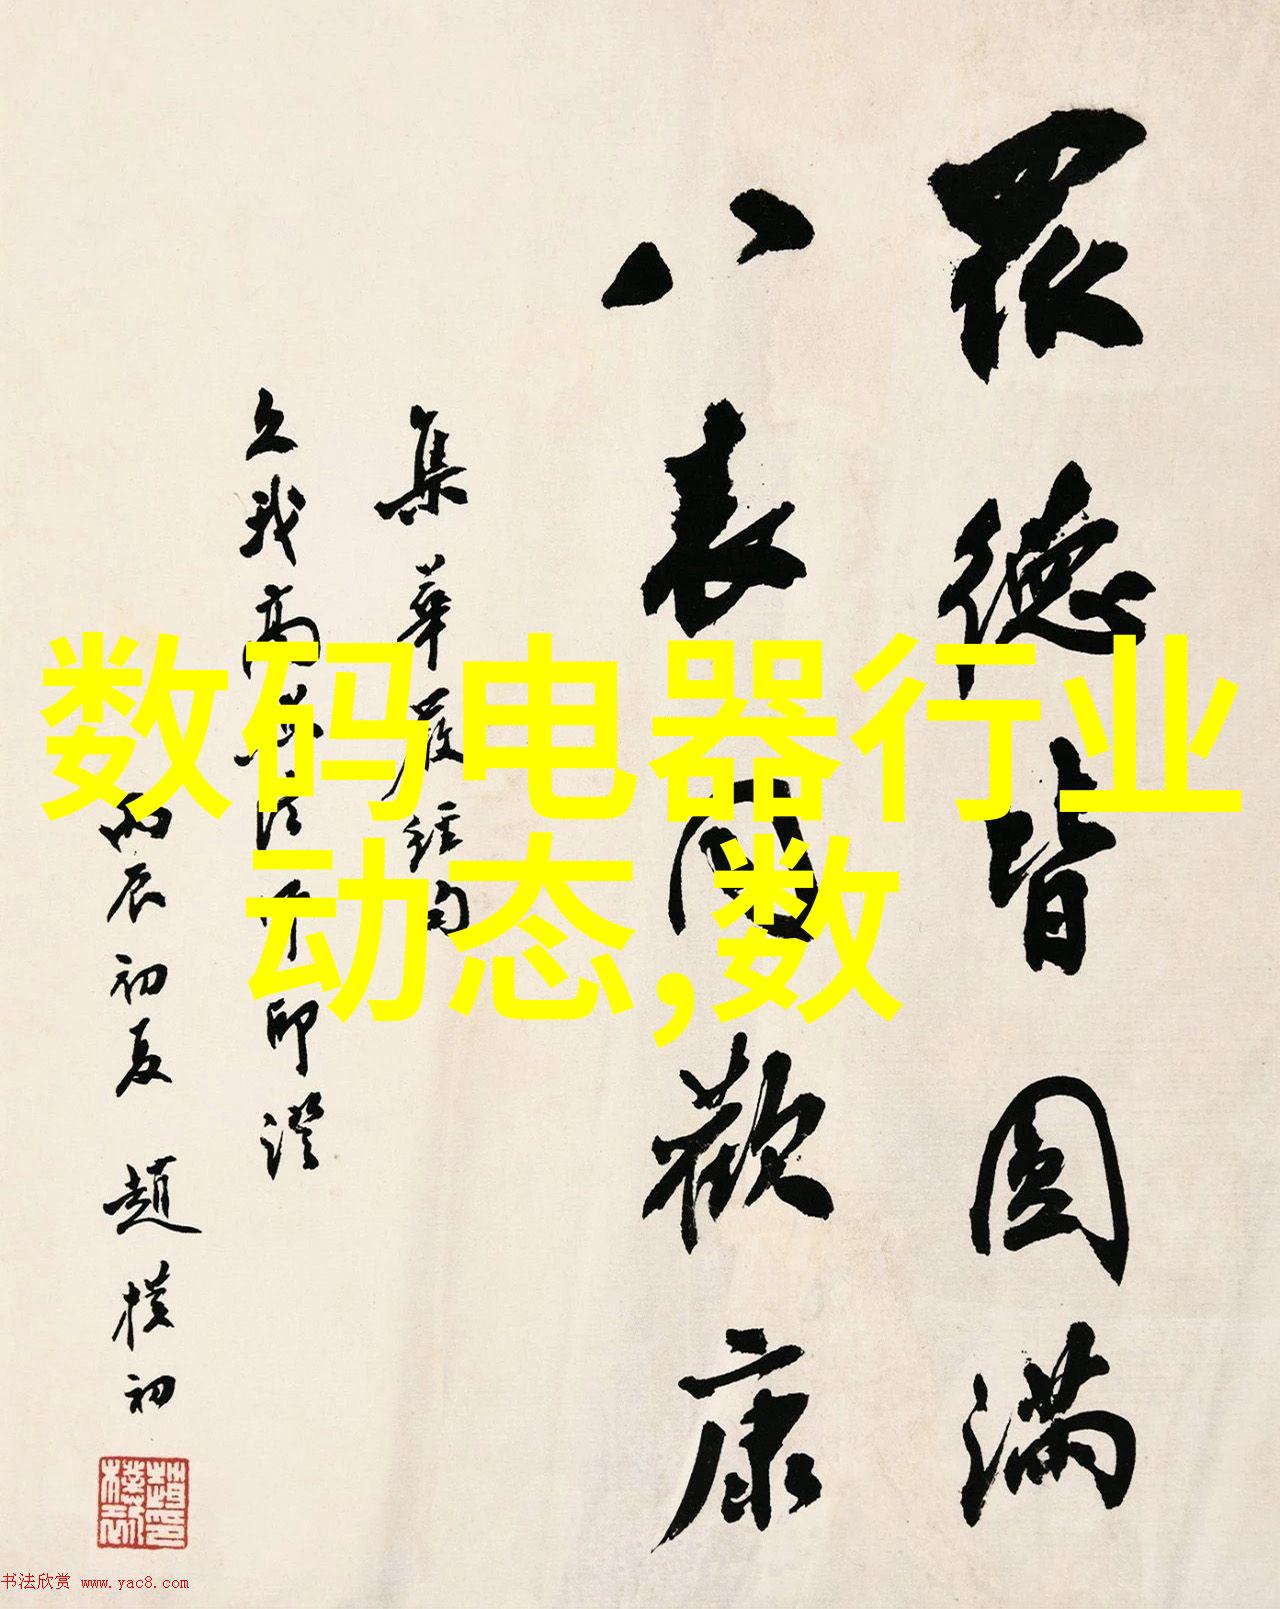 数码电器行业
动态,数
眾德皆圓滿
八表同歡康
集華嚴經句
久我高法師印證
丙辰初夏 趙樸初
书法欣赏 www.yac8.com